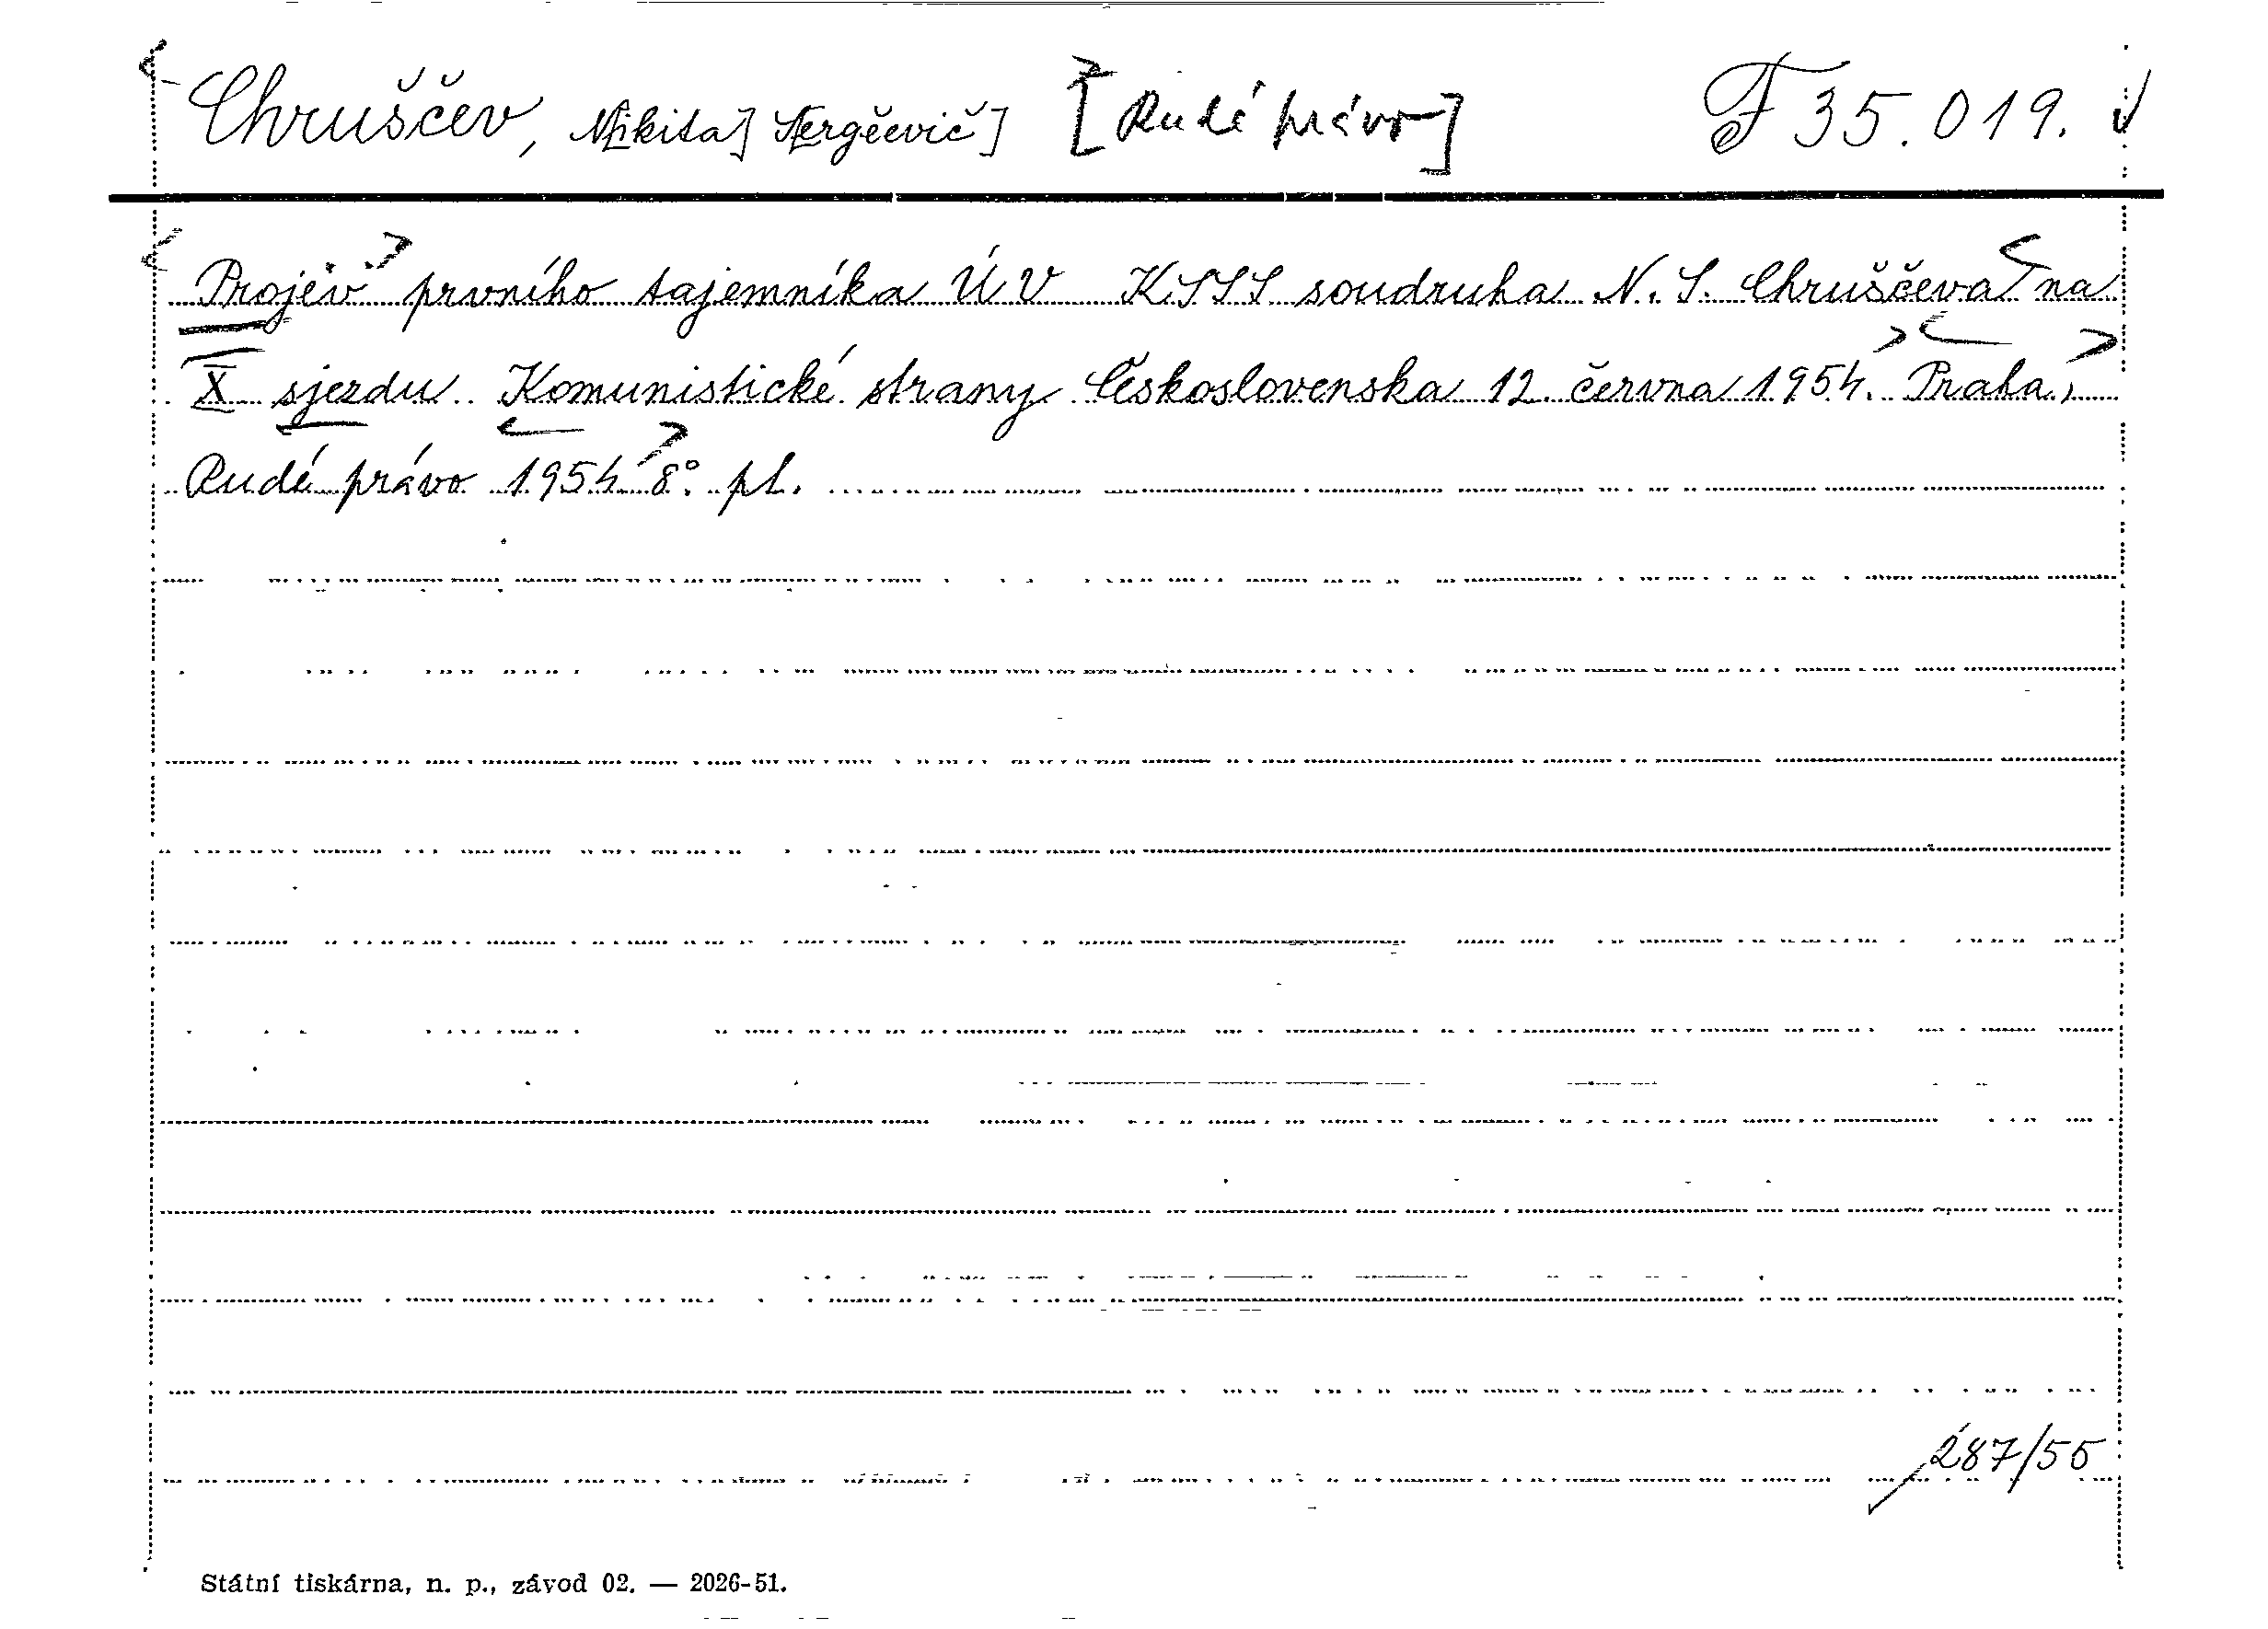 Chruščev, N[ikita] S[ergěevič] [Rudé právo] F 35.019.
Projev prvního tajemníka ÚV KSSS soudruha N. S. Chruščeva na
X. sjezdu Komunistické strany Československa 12. června 1954. Praha,
Rudé právo 1954 8° pl.
287/55
Státní tiskárna, n. p., závod 02. — 2026-51.